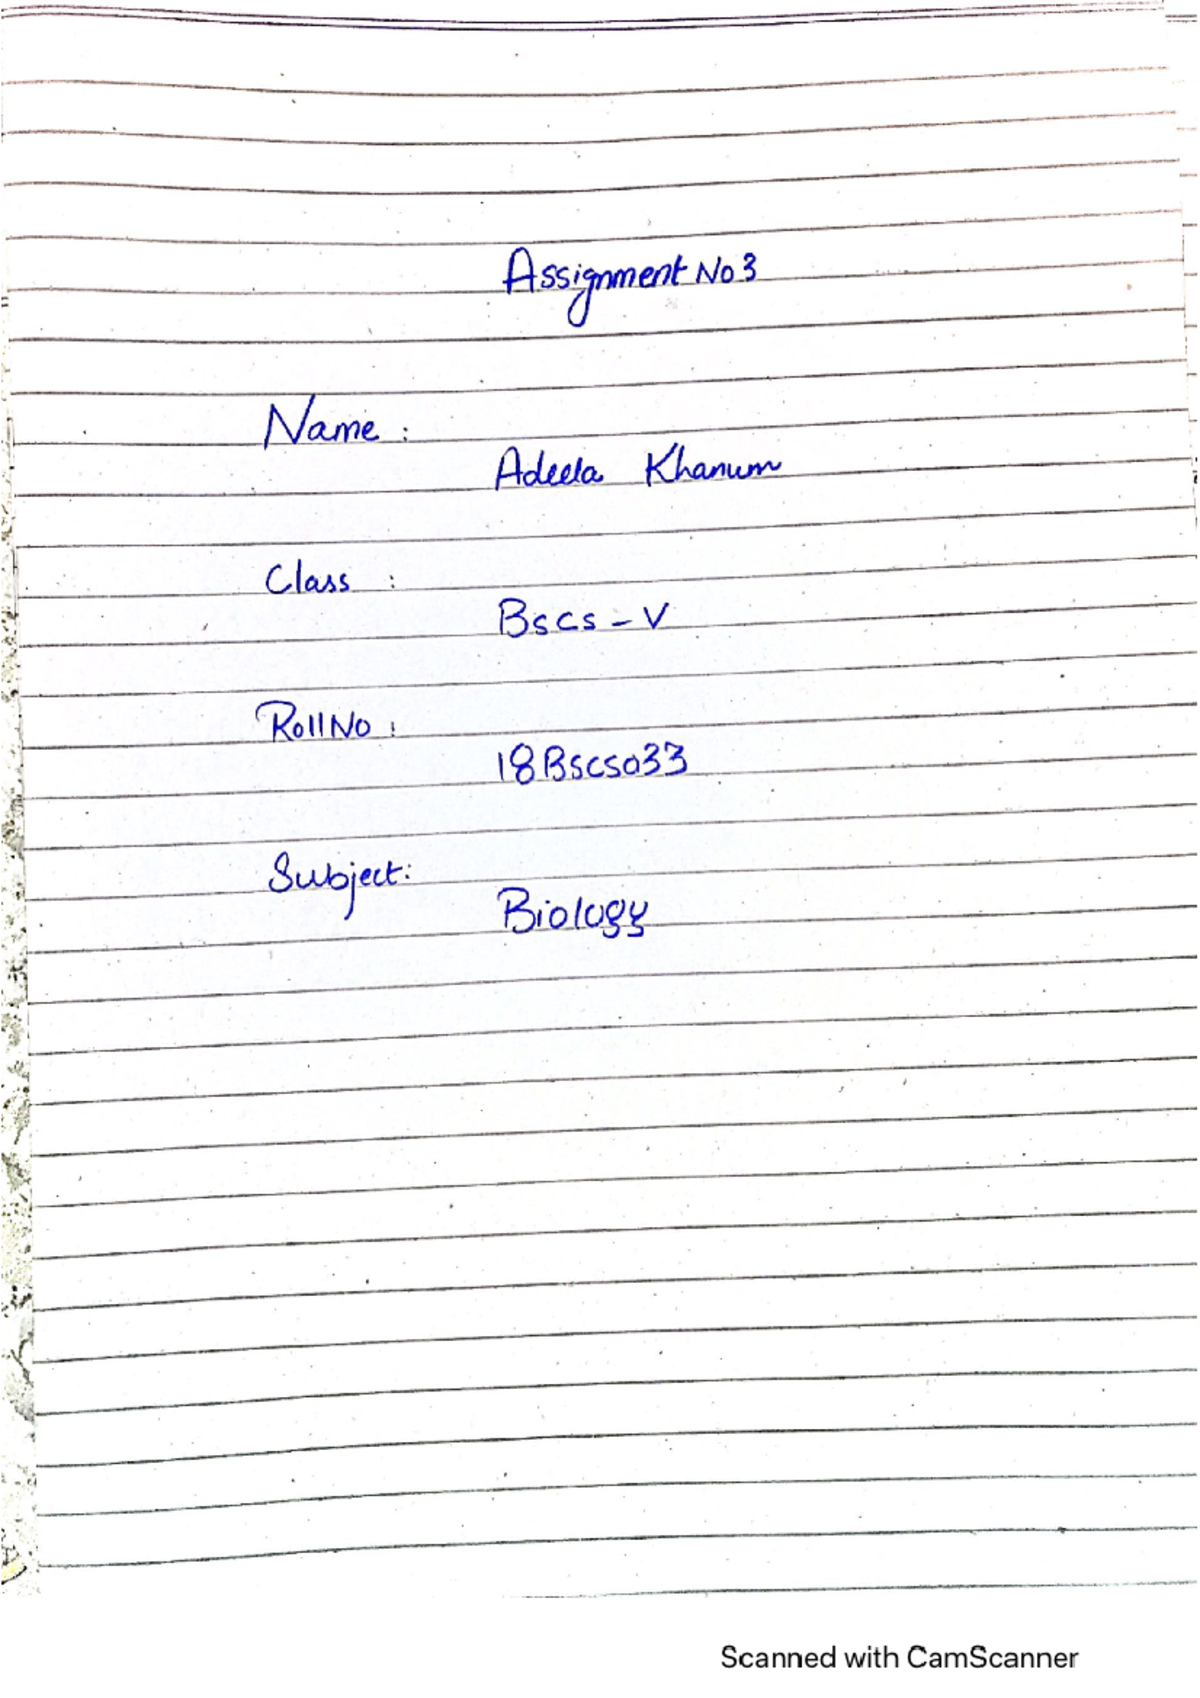 Assignment No 3
Name :
Adeela Khanum
Class :
Bscs - V
Roll No :
18Bscs033
Subject:
Biology
Scanned with CamScanner